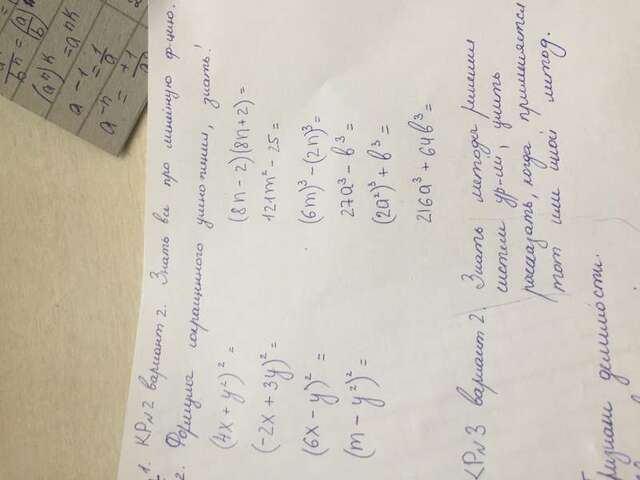 b^n = (a/b)^n
(a^n)^k = a^nk
a^-1 = 1/a
a^-n = +1/
1. КР№2 вариант 2. Знать все про линейную ф-цию.
2. Формулы сокращенного умножения, знать!
(4x + y²)² =
(-2x + 3y)² =
(6x - y)² =
(m - y²)² =
(8n - 2)(8n + 2) =
121m² - 25 =
(6m)³ - (2n)³ =
27a³ - b³ =
(2a²)³ + b³ =
216a³ + 64b³ =
КР№3 вариант 2. Знать методы решения
систем ур-ий, уметь
рассказать, когда применяется
тот или иной метод.
Признаки делимости.